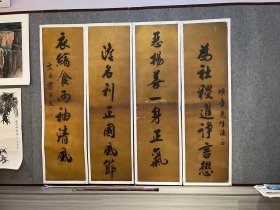 為社稷進諍言懲
惡揚善一身正氣
淡名利正國風節
衣縮食兩袖清風